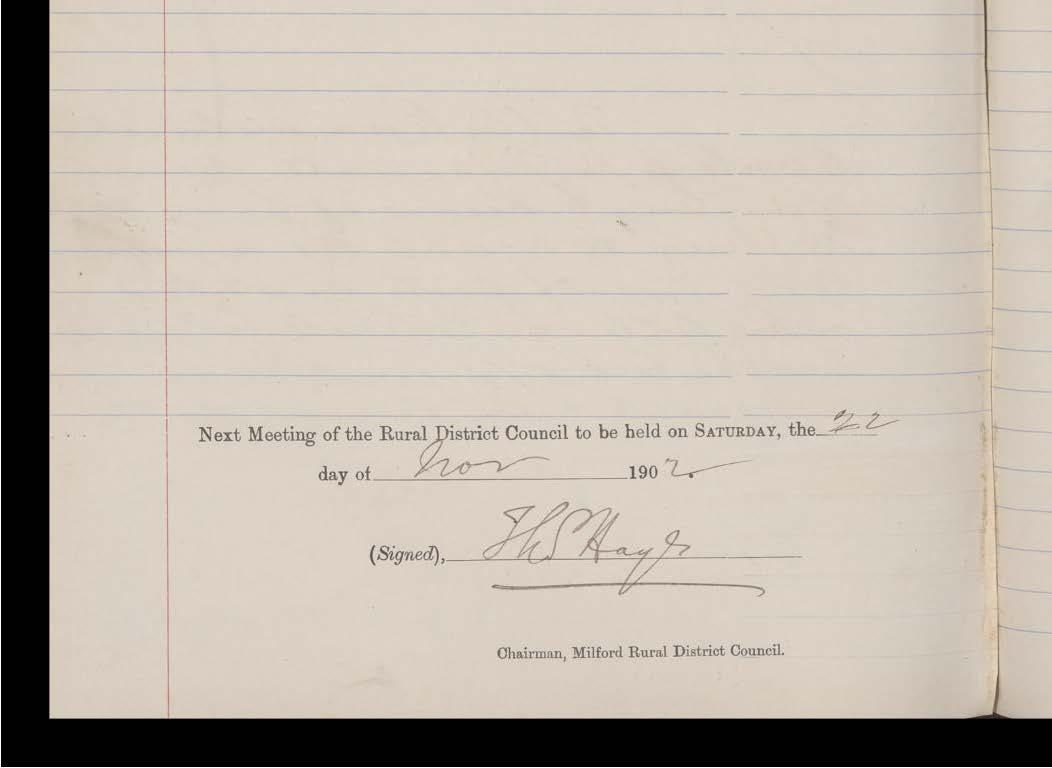 Next Meeting of the Rural District Council to be held on SATURDAY, the 22
day of Nov 1902.
(Signed), Thos Hayes
Chairman, Milford Rural District Council.